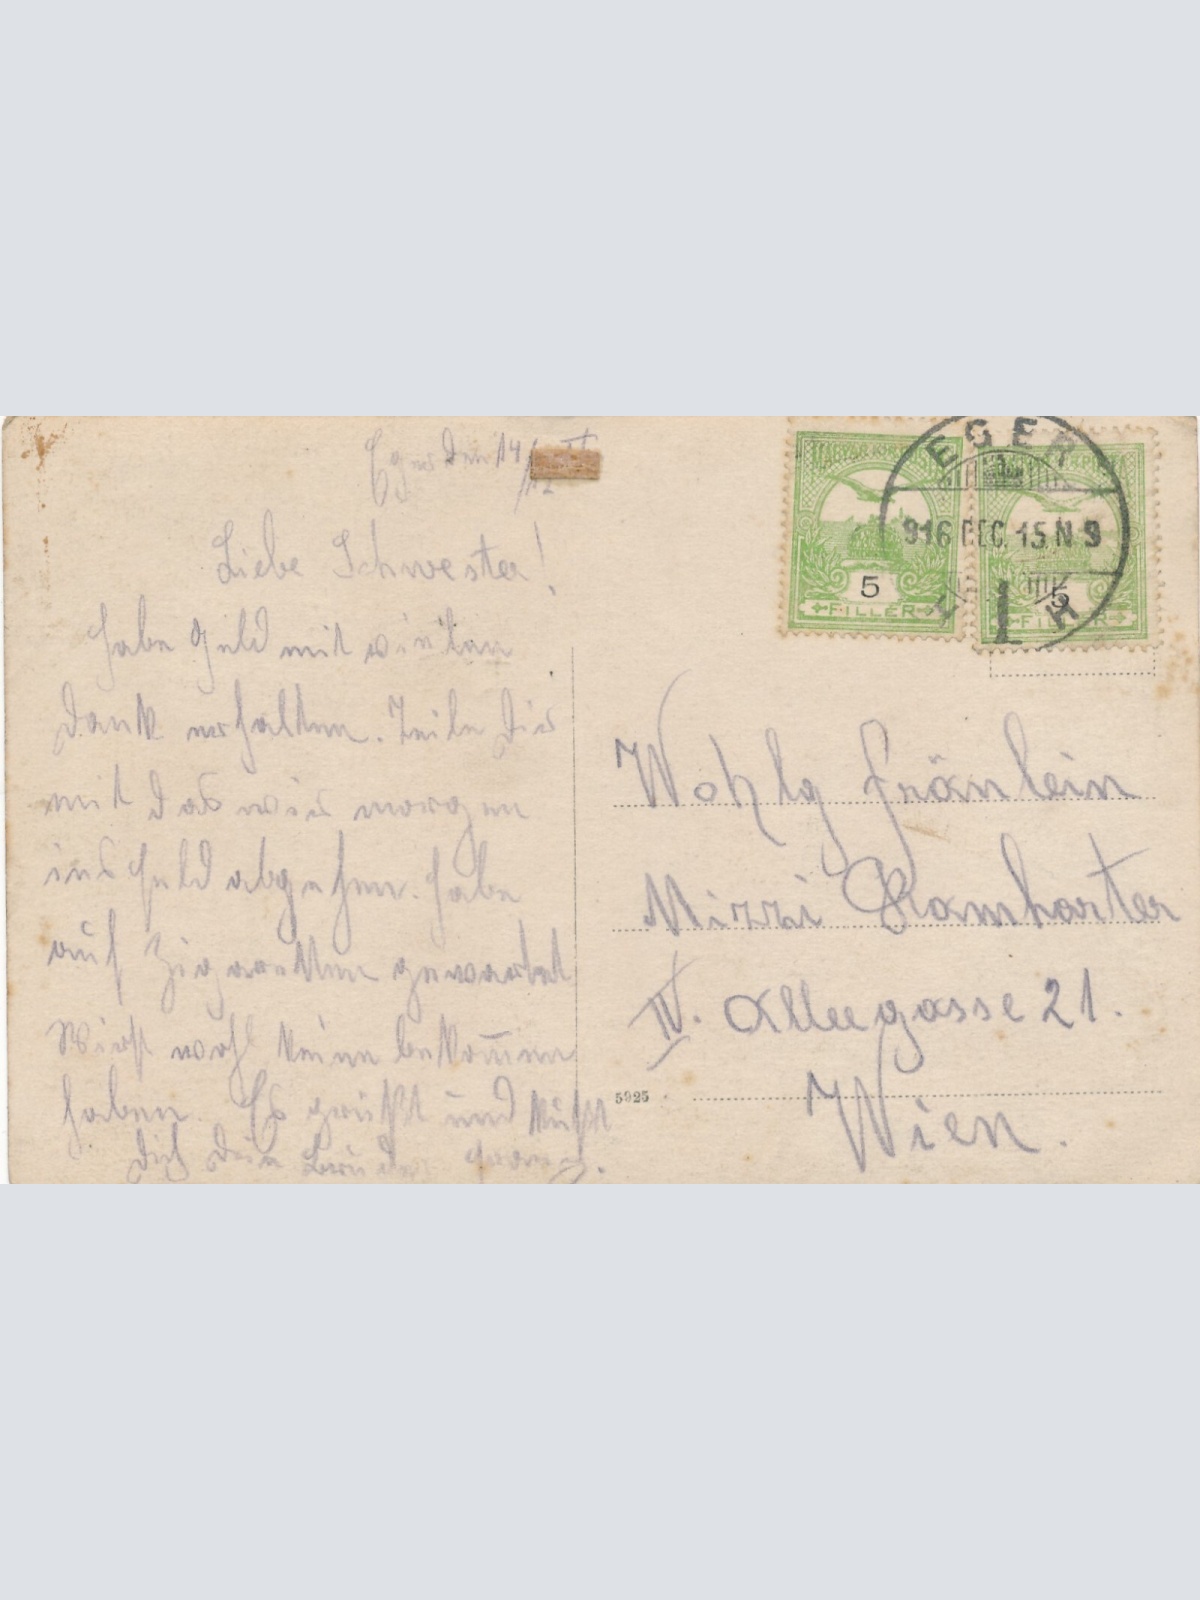 Eger den 14/12
Liebe Schwester!
Habe Geld mit vielen
Dank erhalten. Teile Dir
mit das wir morgen
ins Feld abgehen. Habe
auf Zigaretten gewartet
Wirst wohl keine bekom̅en
haben. Es grüßt und küßt
Dich Dein Bruder Franz.
MAGYAR KIR
5
FILLER
5
FILLER
EGER
916 DEC. 15 N 9
Wohlg Fräulein
Mizzi Ramharter
IV. Alleegasse 21.
Wien.
5925